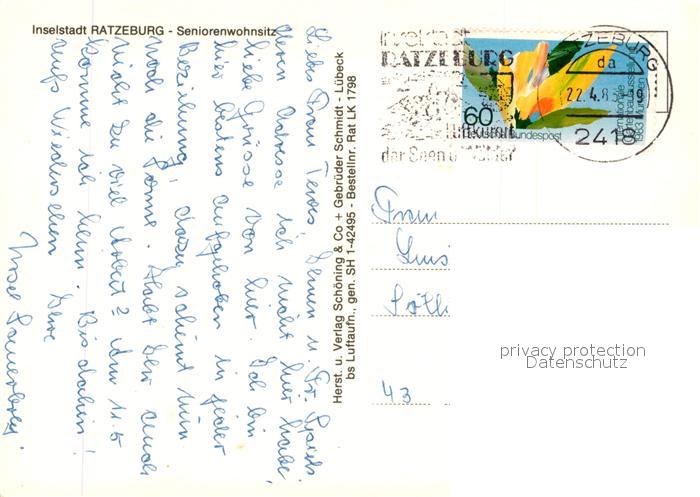 Inselstadt RATZEBURG - Seniorenwohnsitz
Liebe Frau Ihnen u. Fr.
deren Adresse ich nicht hier habe,
liebe Grüsse von hier. Ich bin
hier bestens aufgehoben in jeder
Beziehung, dazu scheint nun
noch die Sonne. Haben Sie auch
nicht zu viel Arbeit? Am 11.5
komme ich heim. Bis dahin!
Aufs Wiedersehen Ihre
Herst. u. Verlag Schöning & Co + Gebrüder Schmidt - Lübeck
bs Luftaufn., gen. SH 1-42495 - Bestellnr. Rat LK 1798
Inselstadt
RATZEBURG
Luftkurort
der Seen u. Wälder
60
Deutsche Bundespost
Internationale
Gartenbauausstellung
1983 München
RATZEBURG
da
22.4.83
2418
Frau
43
privacy protection
Datenschutz